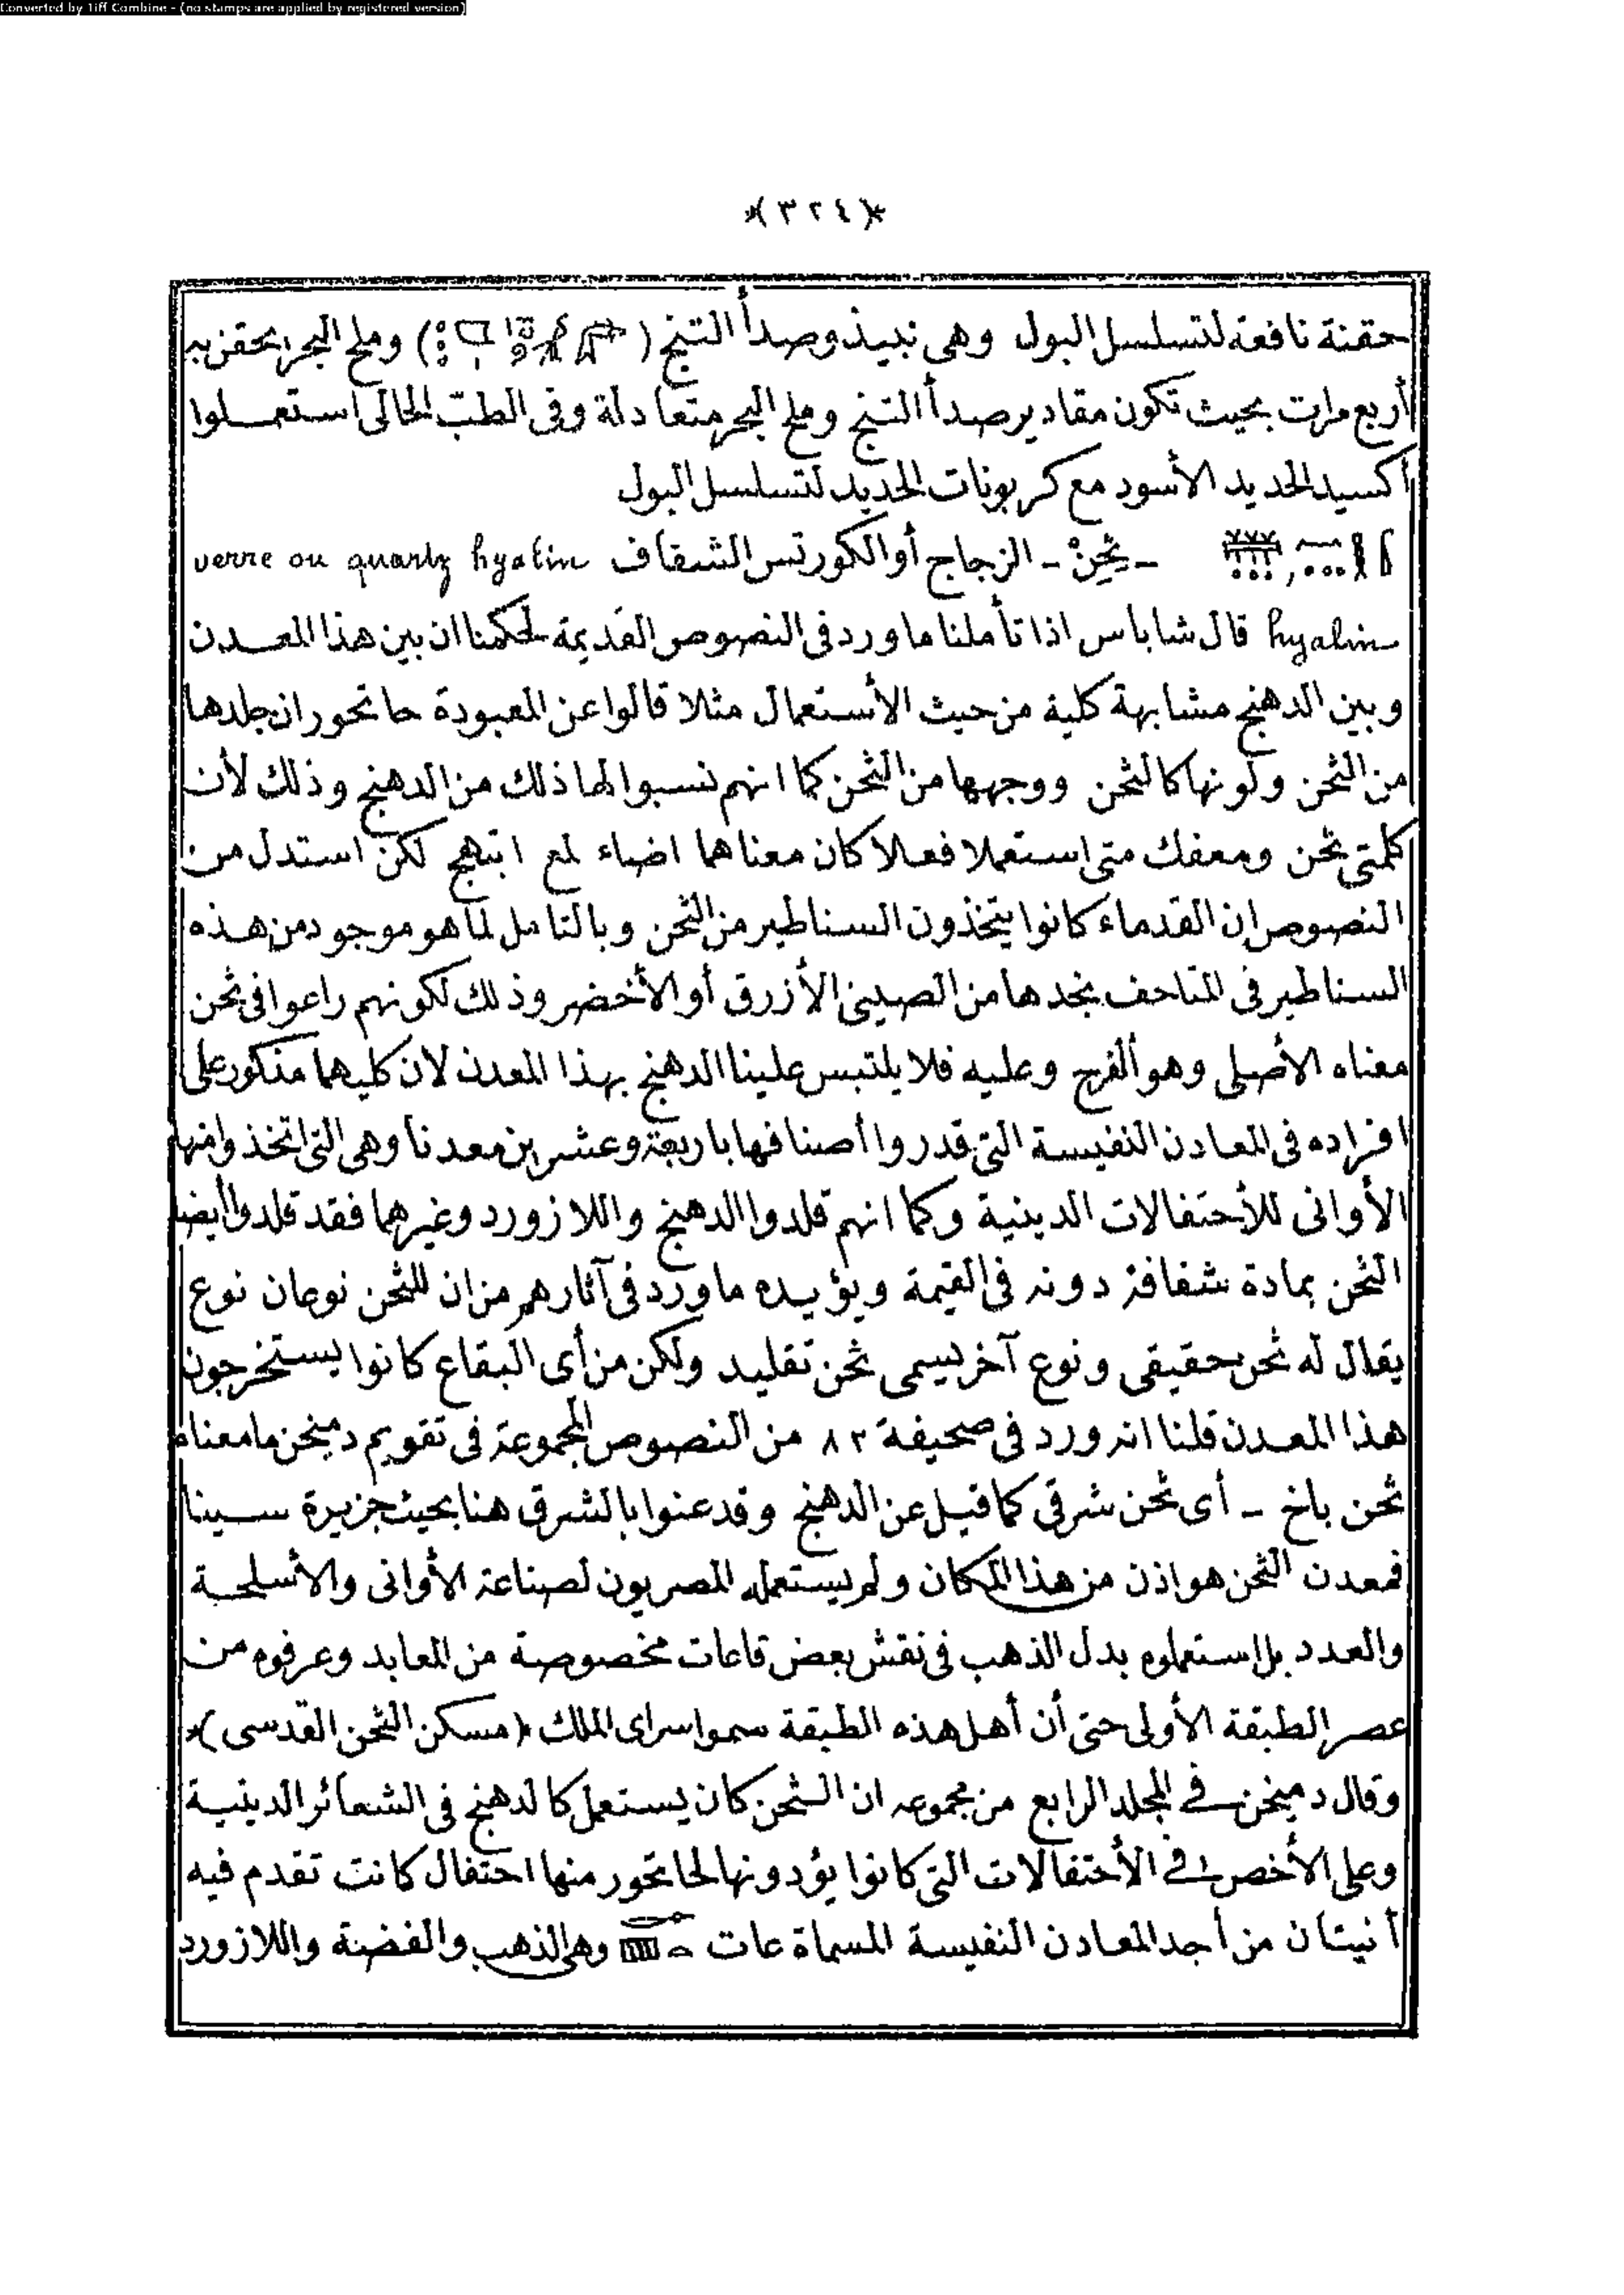 Converted by Tiff Combine - (no stamps are applied by registered version)
*(٣٢٤)*
حقنة نافعة لتسلسل البول وهى نبيذ وصدأ التنج ( ) وملح البحر يحقن به
أربع مرات بحيث تكون مقادير صدأ التنج وملح البحر متعادلة وفى الطبّ الحالى استعملوا
أكسيد الحديد الأسود مع كربونات الحديد لتسلسل البول
ـ ثحِنْ ـ الزجاج أو الكورتس الشفاف verre ou quartz hyalin
hyalin قال شاباس اذا تأملنا ما ورد فى النصوص القديمة لحكمنا ان بين هذا المعدن
وبين الدهنج مشابهة كلية من حيث الأستعمال مثلا قالوا عن المعبودة حاتحور ان جلدها
من الثحن ولونها كالثحن ووجهها من الثحن كما انهم نسبوا لها ذلك من الدهنج وذلك لأن
كلمتى ثحن ومعفك متى استعملا فعلا كان معناهما اضاء لمع ابتهج لكن استدل من
النصوص ان القدماء كانوا يتخذون السناطير من الثحن وبالتامل لما هو موجود من هذه
السناطير فى المتاحف نجدها من الصينى الأزرق أو الأخضر وذلك لكونهم راعوا فى ثحن
معناه الأصلى وهو ألفرج وعليه فلا يلتبس علينا الدهنج بهذا المعدن لان كليهما مذكور على
افراده فى المعادن النفيسة التى قدروا أصنافها باربعة وعشرين معدنا وهى التى اتخذوا منها
الأوانى للأحتفالات الدينية وكما انهم قلدوا الدهنج واللازورد وغيرهما فقد قلدوا أيضا
الثحن بمادة شفافة دونه فى القيمة ويؤيده ما ورد فى آثارهم من ان للثحن نوعان نوع
يقال له ثحن حقيقى ونوع آخر يسمى ثحن تقليد ولكن من أى البقاع كانوا يستخرجون
هذا المعدن قلنا انه ورد فى صحيفة ٨٢ من النصوص المجموعة فى تقويم دميخن ما معناه
ثحن باخ ـ أى ثحن شرقى كما قيل عن الدهنج وقد عنوا بالشرق هنا بحيث جزيرة سينا
فمعدن الثحن هو اذن من هذا المكان ولم يستعمله المصريون لصناعة الأوانى والأسلحة
والعدد بل استعملوه بدل الذهب فى نقش بعض قاعات مخصوصة من المعابد وعرفوه من
عصر الطبقة الأولى حتى أن أهل هذه الطبقة سموا سراى الملك *(مسكن الثحن القدسى)*
وقال دميخن فى المجلد الرابع من مجموعه ان الثحن كان يستعمل كالدهنج فى الشعائر الدينية
وعلى الأخص فى الأحتفالات التى كانوا يؤدونها لحاتحور منها احتفال كانت تقدم فيه
أنيتان من أجد المعادن النفيسة المسماة عات وهى الذهب والفضة واللازورد